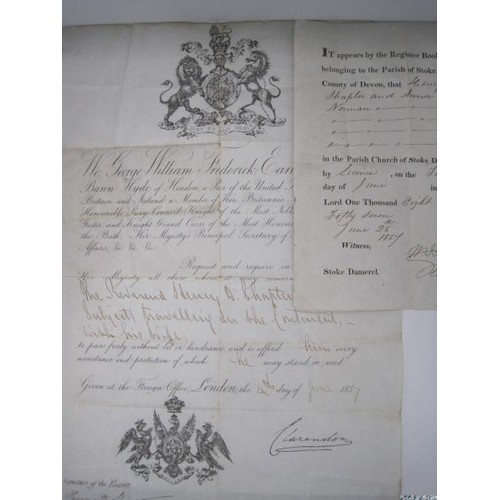 We George William Frederick Earl
Baron Hyde of Hindon, a Peer of the United
Britain and Ireland a Member of Her Britannic
Honourable Privy Council Knight of the Most Noble
Garter and Knight Grand Cross of the Most Honour
the Bath, Her Majesty's Principal Secretary of
Affairs, &c. &c. &c.
Request and require in
Her Majesty all those whom it may concern
The Reverend Henry
Subject travelling on the Continent,
with his wife,
to pass freely without let or hindrance, and to afford them every
assistance and protection of which he may stand in need.
Given at the Foreign Office, London, the day of June 1857
Clarendon
of the Bearer
IT appears by the Register Book
belonging to the Parish of Stoke
County of Devon, that Henry
Norman
in the Parish Church of Stoke D
by Licence, on the
day of June in
Lord One Thousand Eight
Fifty seven
June 25th 1857
Witness,
Stoke Damerel.